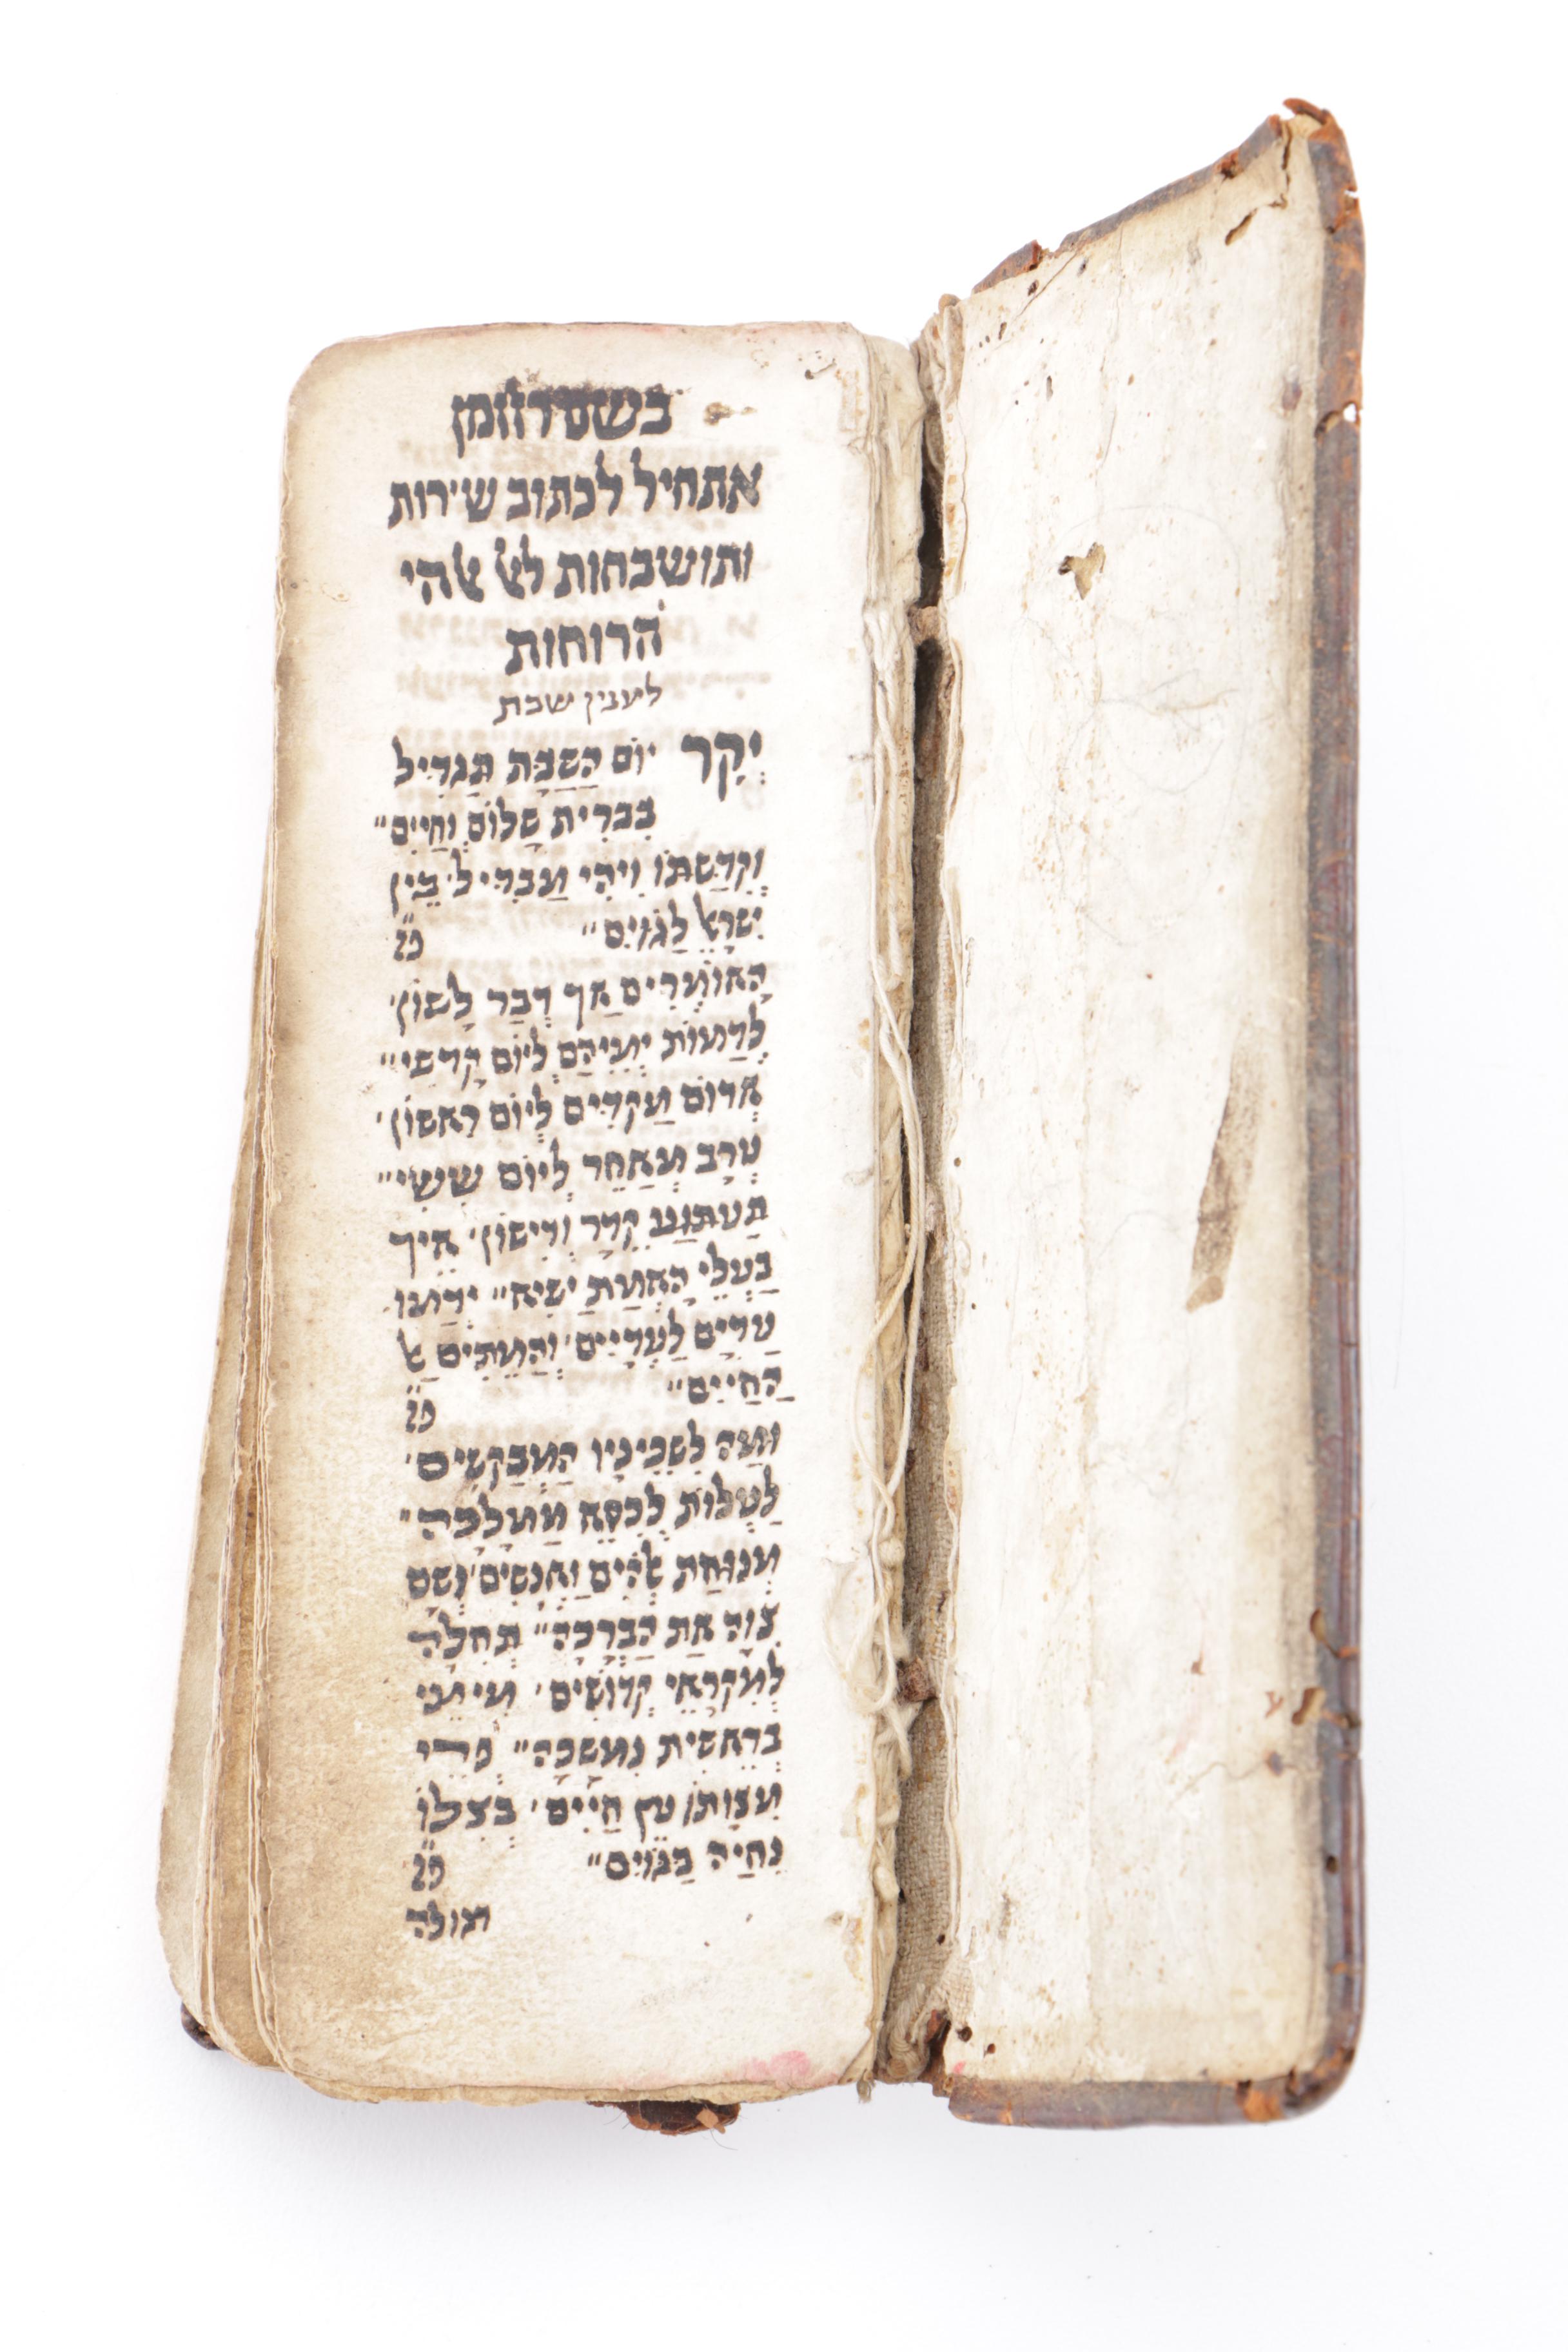 אתחיל לכתוב שירות
ותושבחות לﭏ ﭏהי
הרוחות
לענין שבת
יְקַר יוֹם הַשַּׁבָּת תַּגְדִּיל
בִּבְרִית שָׁלוֹם וְחַיִּים״
וְקִדַּשְׁתּוֹ וִיהִי מַבְדִּיל בֵּין
יִשְׂרָﭏֵ לַגּוֹיִם״ פז״
הָאוֹמְרִים אַךְ דְּבַר לָשׁוֹן׳
לְדַמּוֹת יְמֵיהֶם לְיוֹם קָדְשִׁי״
אֱדוֹם מַקְדִּים לְיוֹם רִאשׁוֹן׳
עֲרָב מְאַחֵר לְיוֹם שִׁשִּׁי״
תַּעְתּוּעַ קֵדָר וְדִישׁוֹן׳ אֵיךְ
בַּעְלֵי הָאֱמֶת יַשִּׁיא״ יְדַמּוּ
עֵדִים לַעֲדָיִים׳ וְהַמֵּתִים ﭏ
הַחַיִּים״ פז״
מַה לִּשְׁכֵינָיו הַמְבַקְשִׁים׳
לַעֲלוֹת לְכִסֵּא מַמְלָכָה״
מְנוּחַת ﭏֹהִים וַאֲנָשִׁים׳ וְשָׁם
צִוָּה אֶת הַבְּרָכָה״ תְּחִלָּה
לְמִקְרָאֵי קְדוֹשִׁים׳ מִימֵי
בְרֵאשִׁית נִמְשָׁכָה״ פְּרִי
מִצְוָתוֹ עֵץ חַיִּים׳ בְּצִלּוֹ
נִחְיֶה בַגּוֹיִם״ פז״